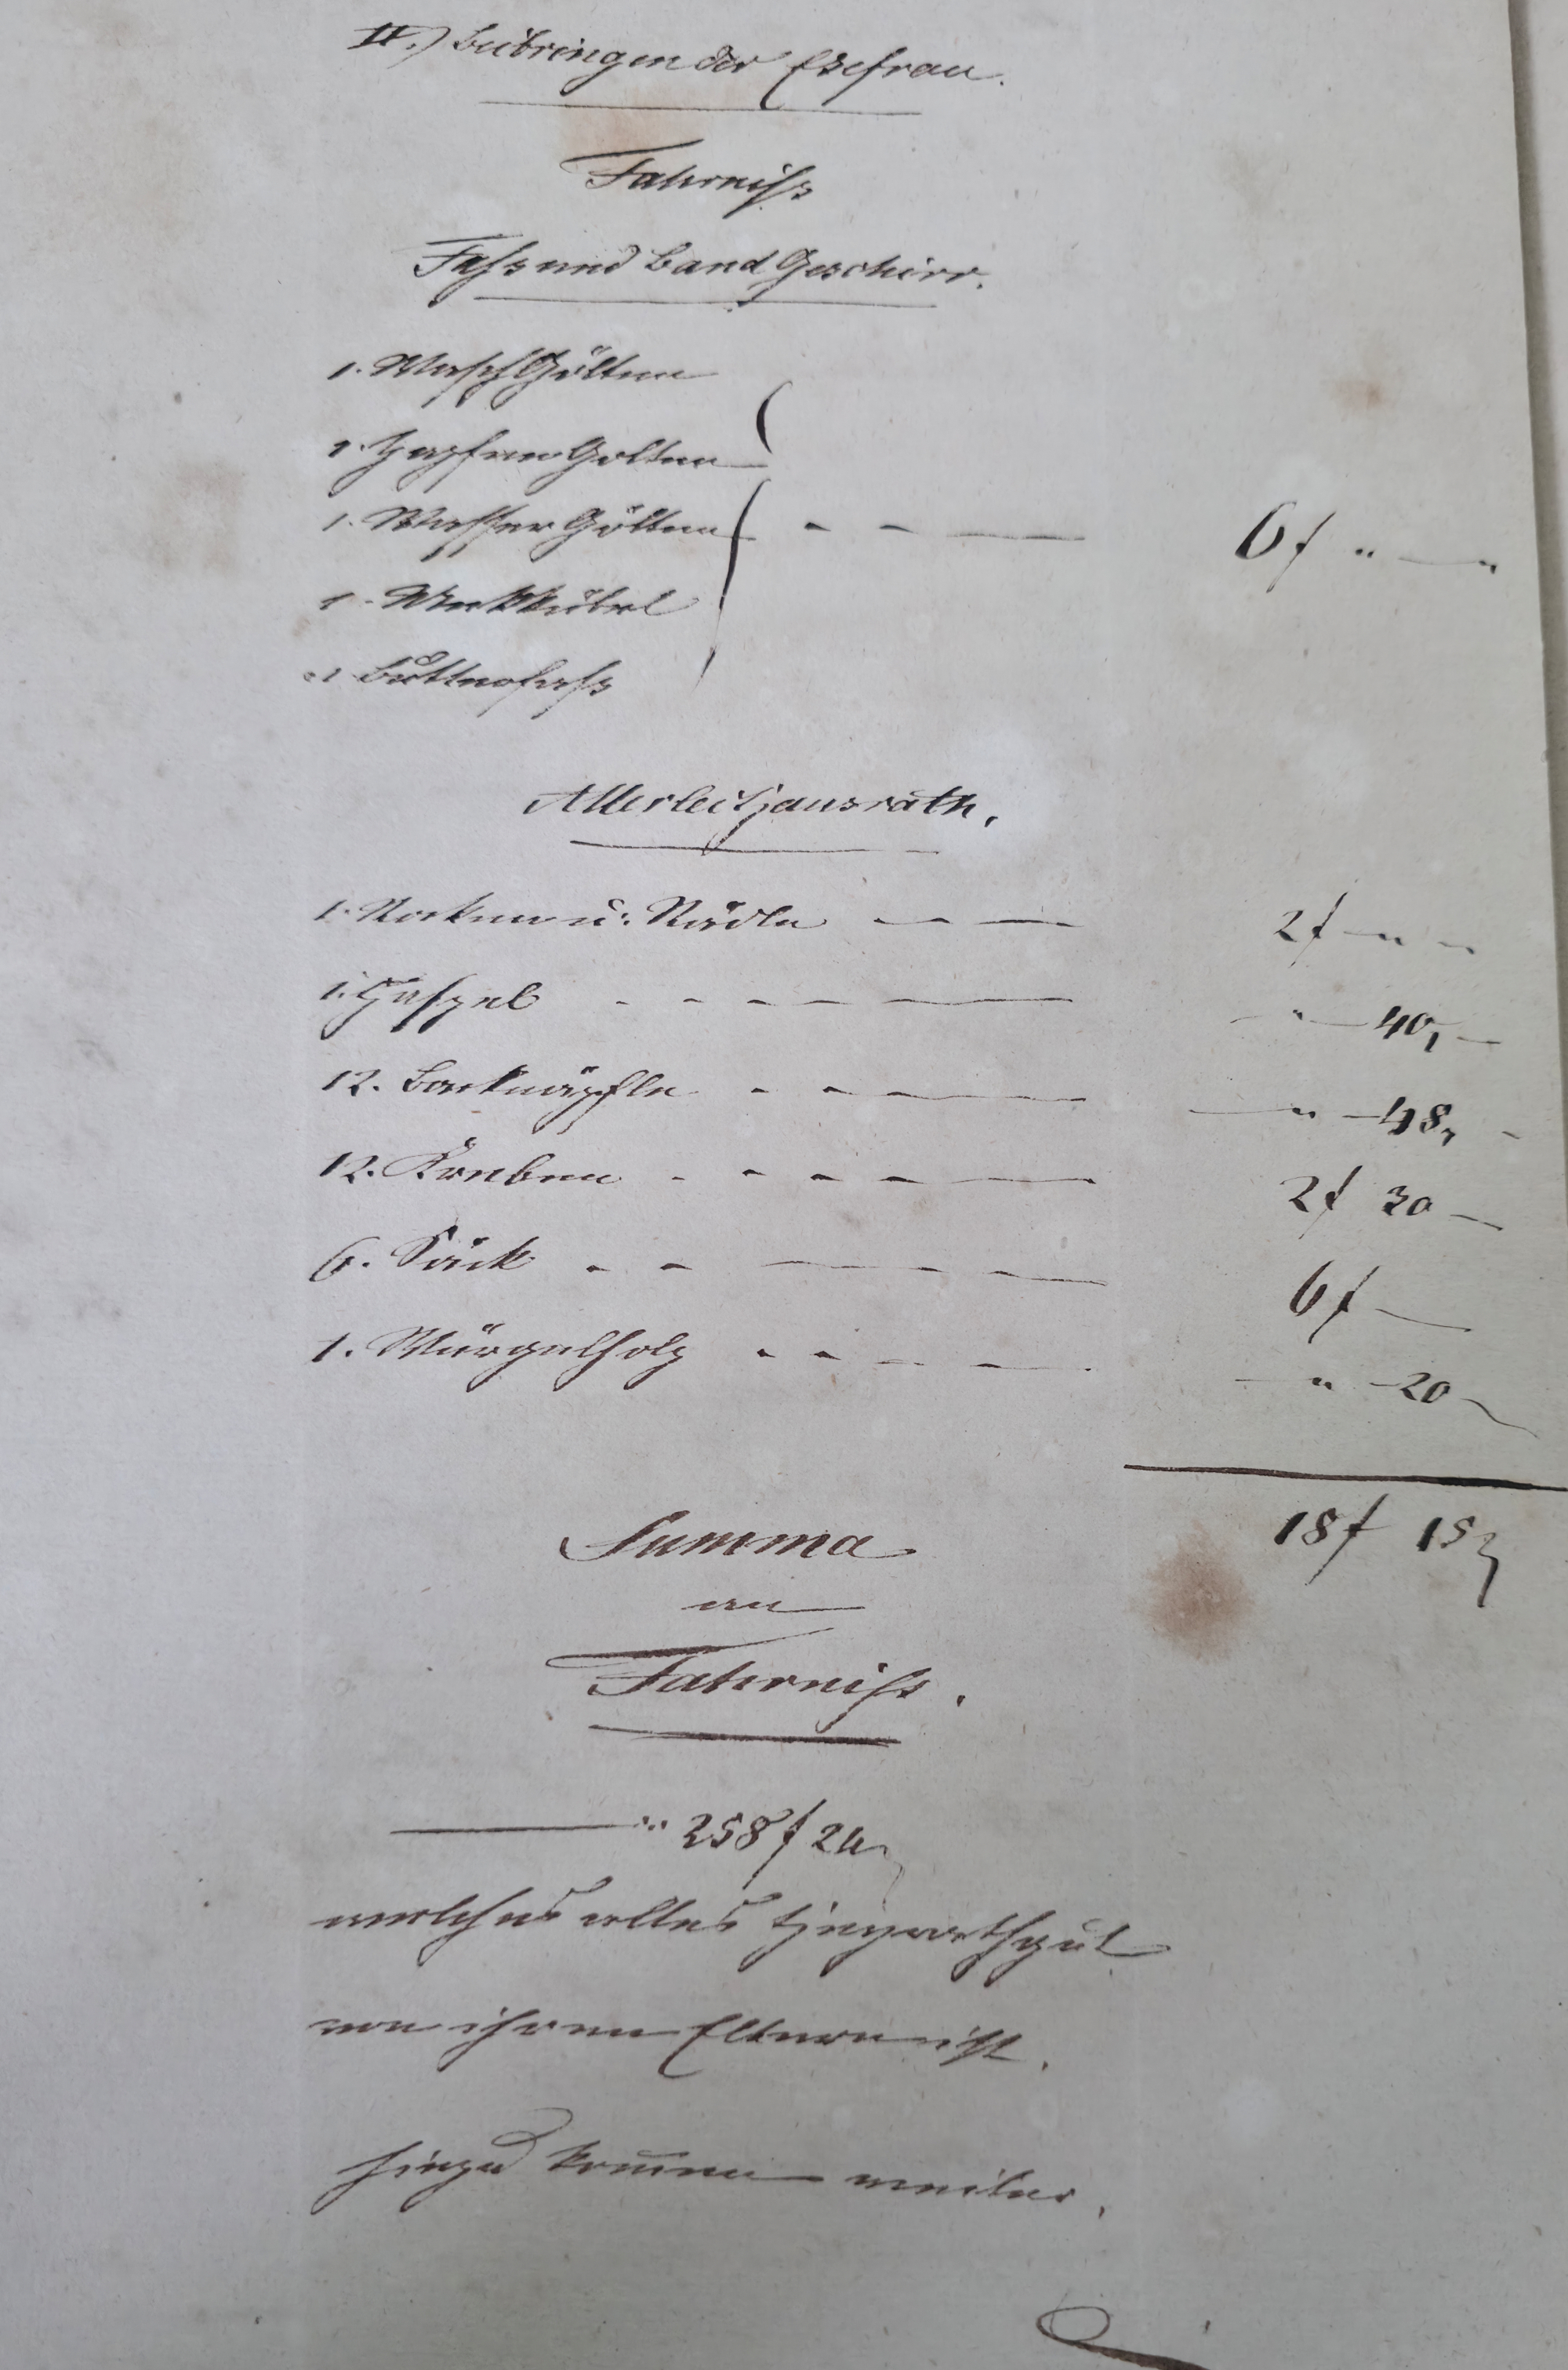 II.) Beibringen der Ehefrau.
Fahrniß
Faß und Band Geschirr.
1. WaschGölten
1. Zapfen Golten
1. Wasser Gölten - - — 6 f " — "
1. Melkkübel
1 Buttnofaß
Allerlei Hausrath.
1. Rocken u: Rädle - - — 2 f — " "
1. Haspel - - - - — " — 40, —
12. Backnäpfle - - — — " — 48, -
12. Kreben - - - - — 2 f 30 —
6. Säck - - — - — 6 f —
1. Würgelholz - - - - — " — 20
18 f 18
Summa
an
Fahrniß.
— " 258 f 24
welches alles Heyrathgut
von ihren Eltern ist.
hiezu kom̄en weiter.